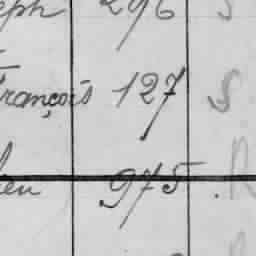 eph 296 S
François 127 S
ieu 975 . R